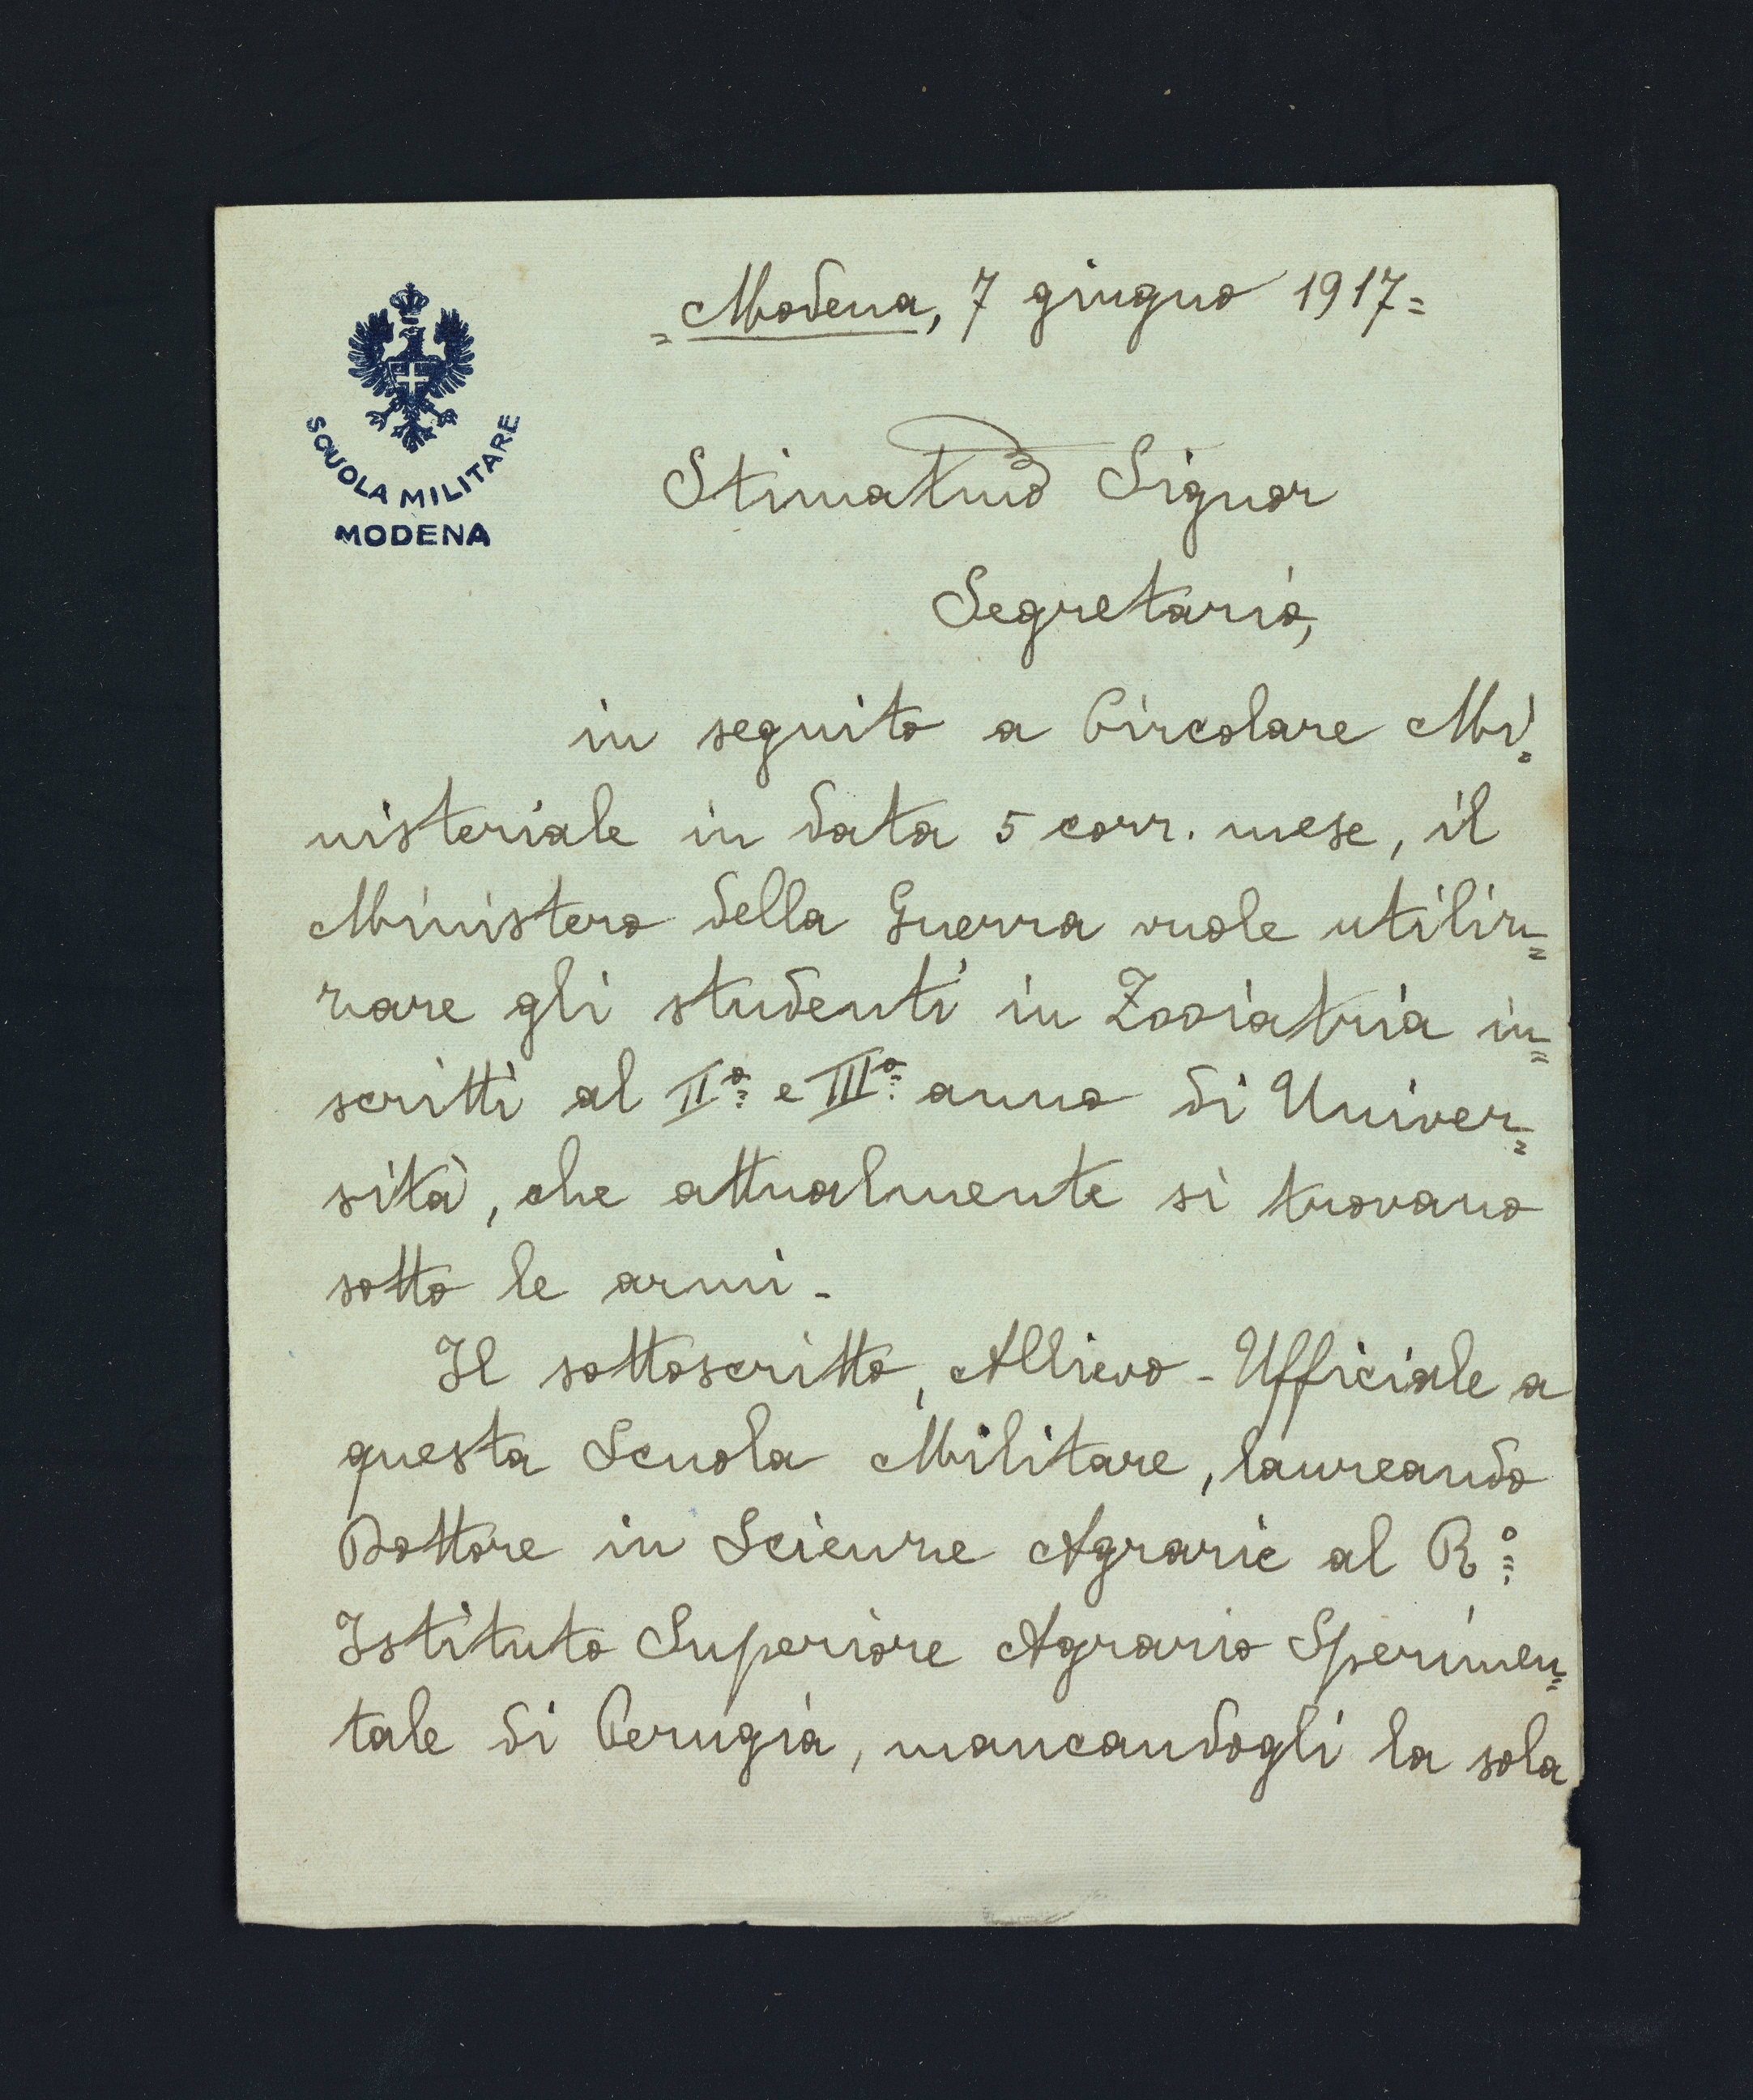 = Modena, 7 giugno 1917 =
SCUOLA MILITARE
MODENA
Stimatmo Signor
Segretario,
in seguito a Circolare Mi=
nisteriale in data 5 corr. mese, il
Ministero della Guerra vuole utiliz=
zare gli studenti in Zooiatria in=
scritti al IIo= e IIIo= anno di Univer=
sità, che attualmente si trovano
sotto le armi -
Il sottoscritto, Allievo - Ufficiale a
questa Scuola Militare, laureando
Dottore in Scienze Agrarie al Ro=
Istituto Superiore Agrario Sperimen=
tale di Perugia, mancandogli la sola